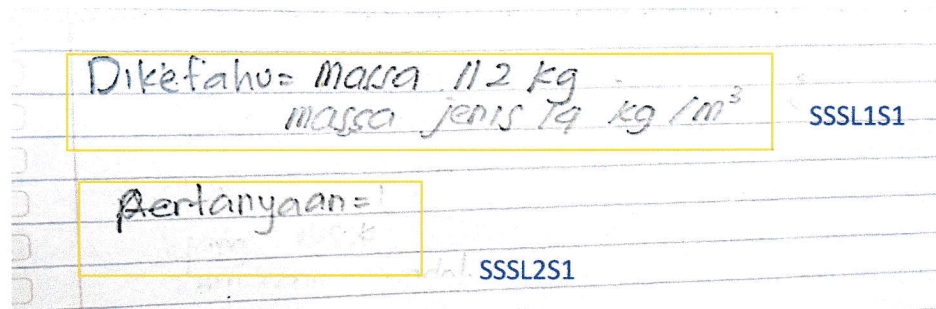 Diketahu= Massa 112 kg
massa jenis 14 kg /m³
SSSL1S1
Pertanyaan=
SSSL2S1